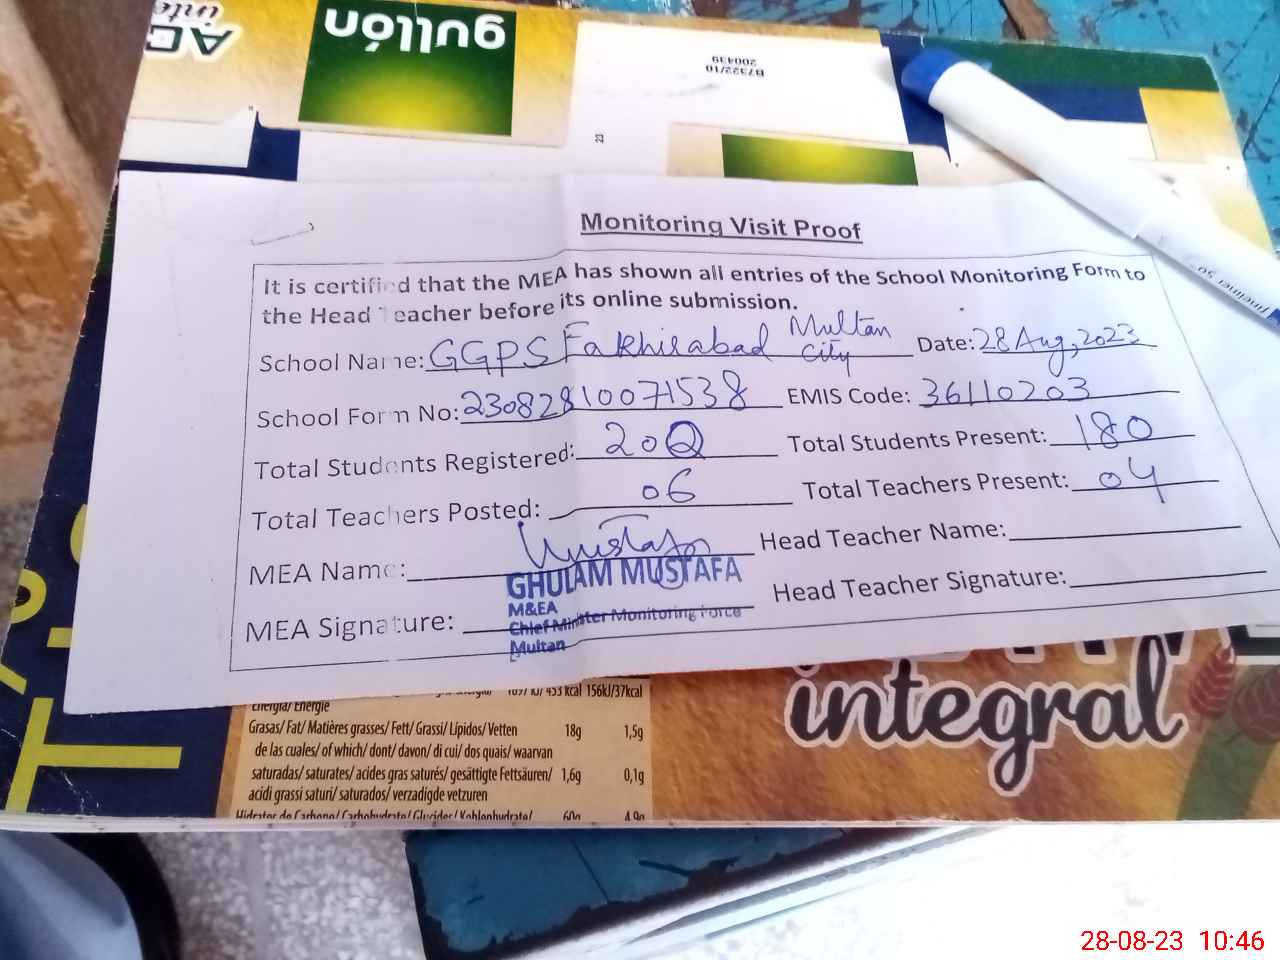 gullón
B7322/10
200439
23
Monitoring Visit Proof
It is certified that the MEA has shown all entries of the School Monitoring Form to
the Head Teacher before its online submission.
School Name: GGPS Fakhirabad Multan City Date: 28 Aug, 2023
School Form No: 23082810071538 EMIS Code: 36110203
Total Students Registered: 202 Total Students Present: 180
Total Teachers Posted: 06 Total Teachers Present: 04
MEA Name: Mustafa Head Teacher Name:
MEA Signature: Head Teacher Signature:
GHULAM MUSTAFA
M&EA
Chief Minister Monitoring Force
Multan
integral
453 kcal 156kJ/37kcal
Energía/ Énergie
Grasas/ Fat/ Matières grasses/ Fett/ Grassi/ Lípidos/ Vetten 18g 1,5g
de las cuales/ of which/ dont/ davon/ di cui/ dos quais/ waarvan
saturadas/ saturates/ acides gras saturés/ gesättigte Fettsäuren/ 1,6g 0,1g
acidi grassi saturi/ saturados/ verzadigde vetzuren
Hidratos de Carbono/ Carbohydrate/ Glucides/ Kohlenhydrate/ 60g 4,9g
28-08-23 10:46